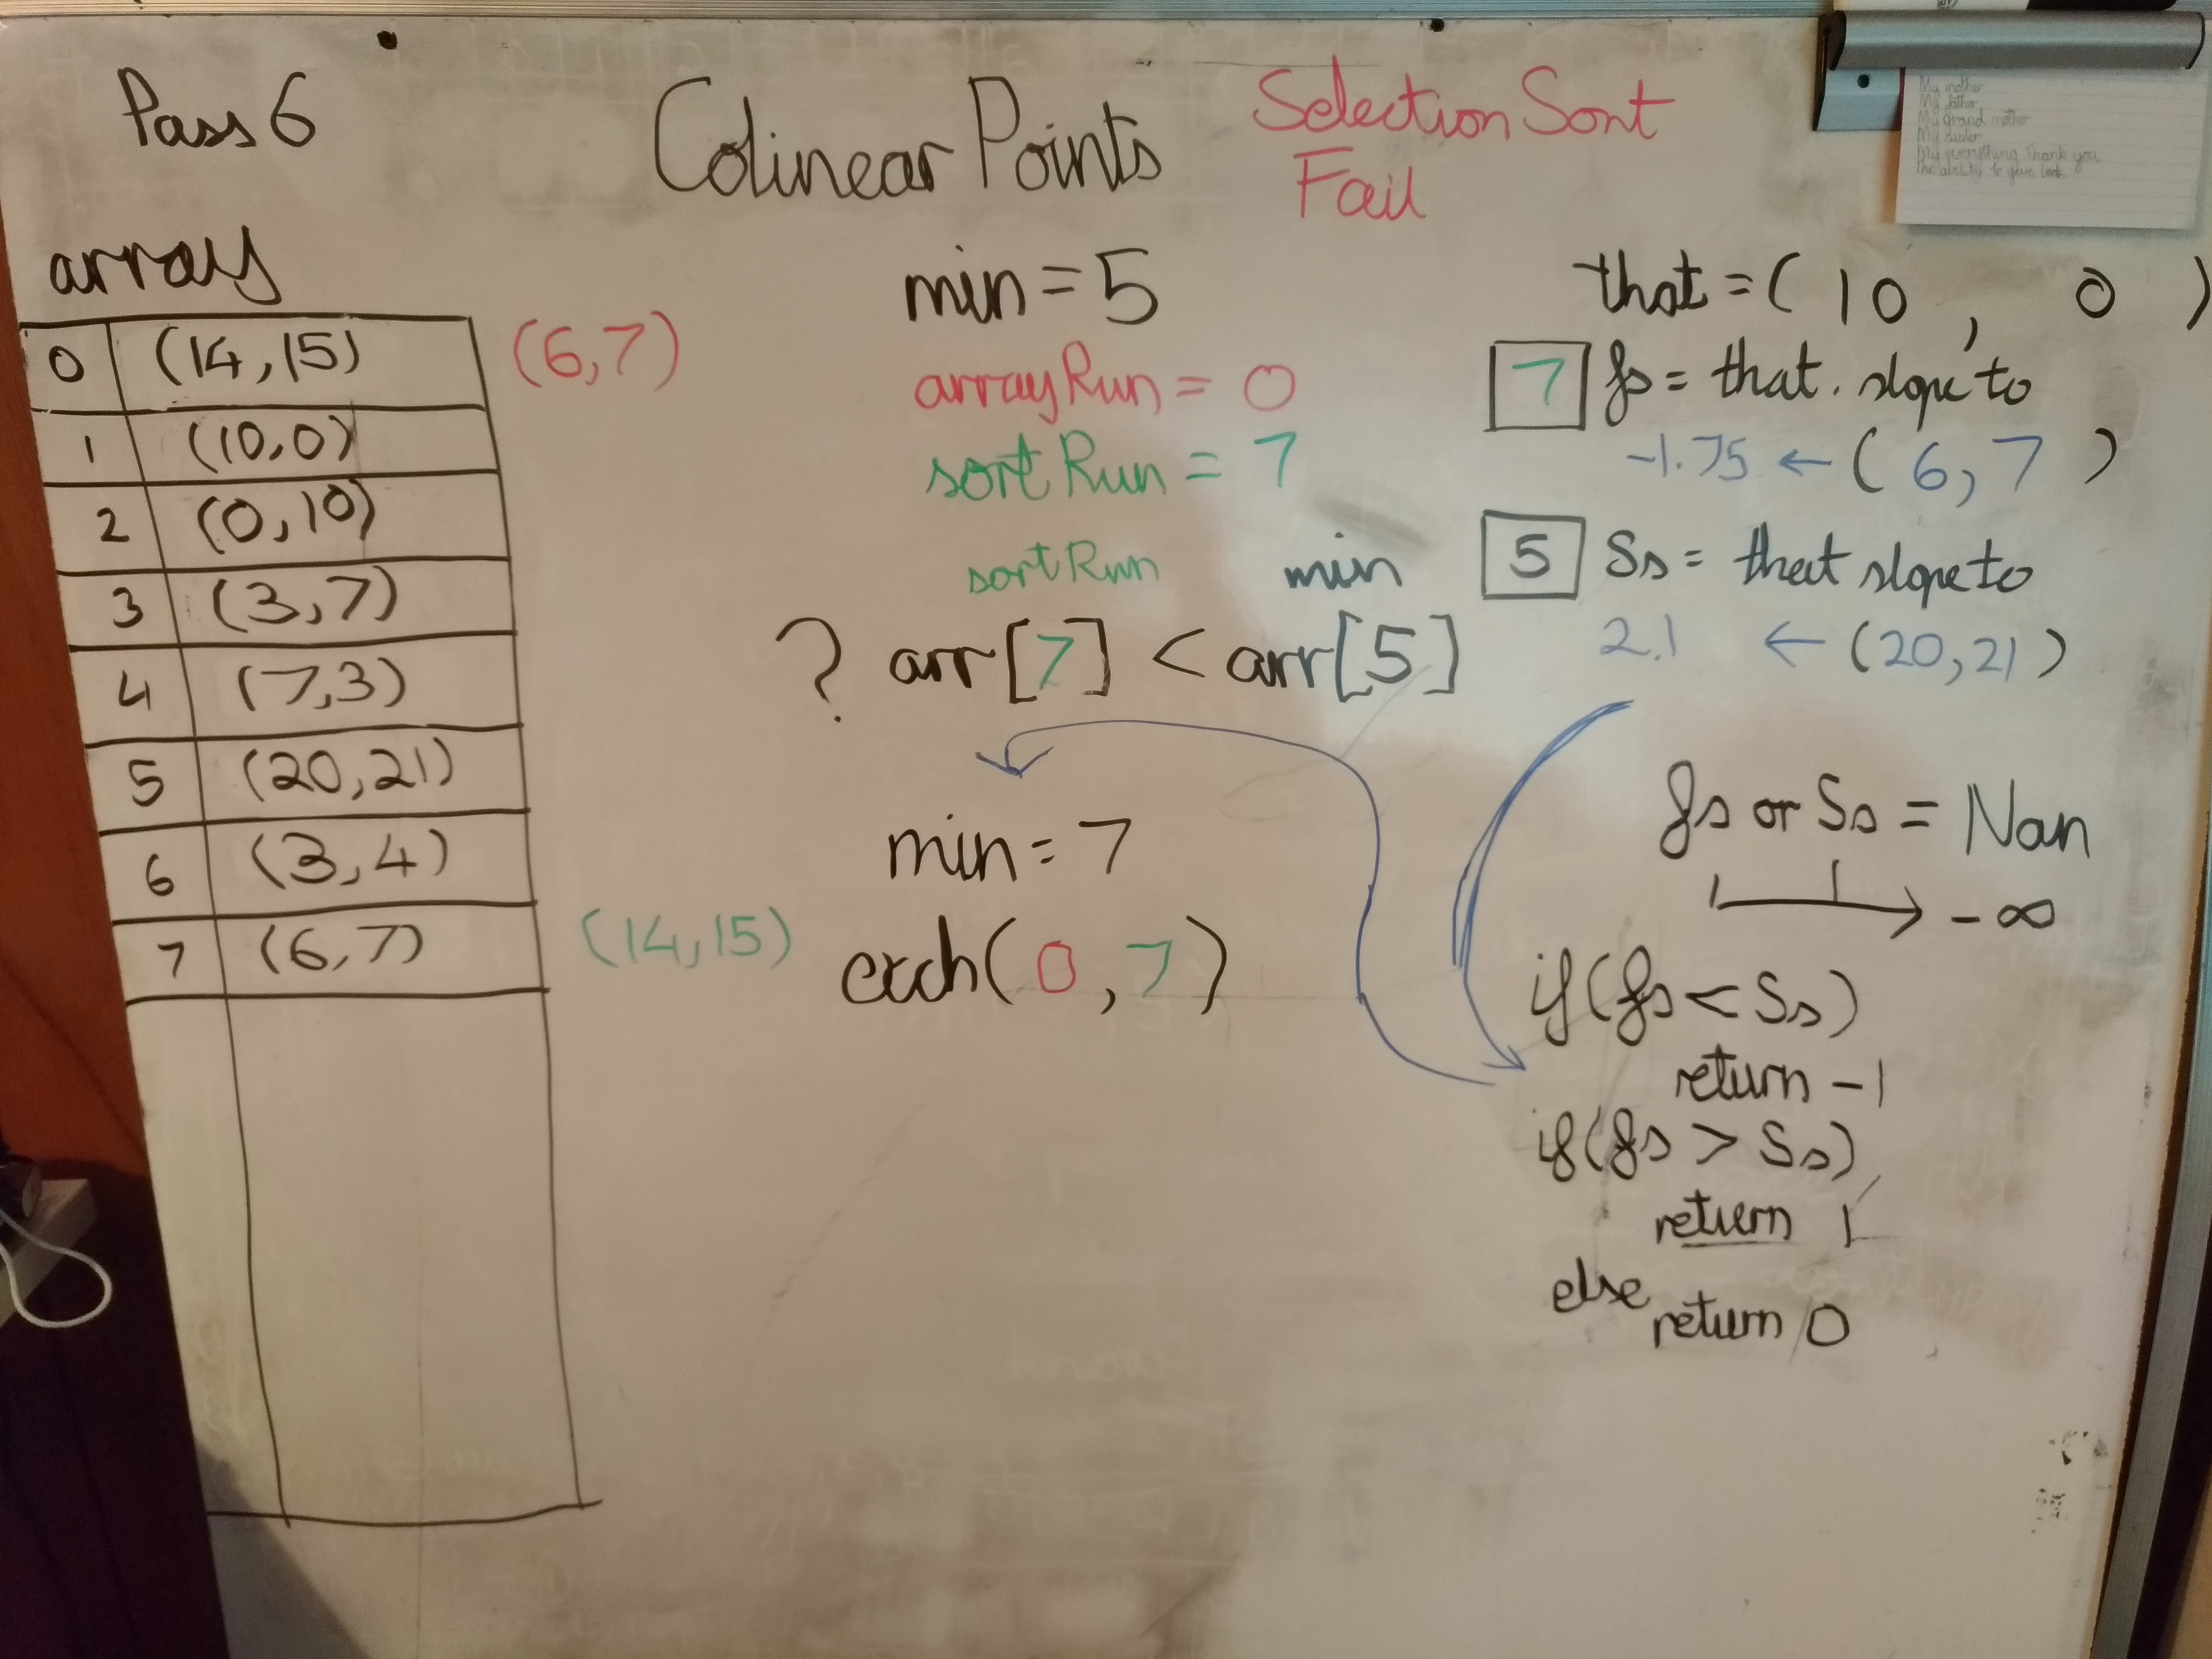 Pass 6
Colinear Points
Selection Sort
Fail
My mother
My father
My grand mother
My sister
My everything Thank you
The ability to give back
array
0 (14,15) (6,7)
1 (10,0)
2 (0,10)
3 (3,7)
4 (7,3)
5 (20,21)
6 (3,4)
7 (6,7) (14,15)
min = 5
arrayRun = 0
sortRun = 7
sortRun min
? arr[7] < arr[5]
min = 7
exch(0,7)
that = (10, 0)
7 fs = that. slope to
-1.75 ← (6,7)
5 Ss = that slope to
2.1 ← (20,21)
fs or Ss = Nan
→ -∞
if(fs < Ss)
return -1
if(fs > Ss)
return 1
else
return 0